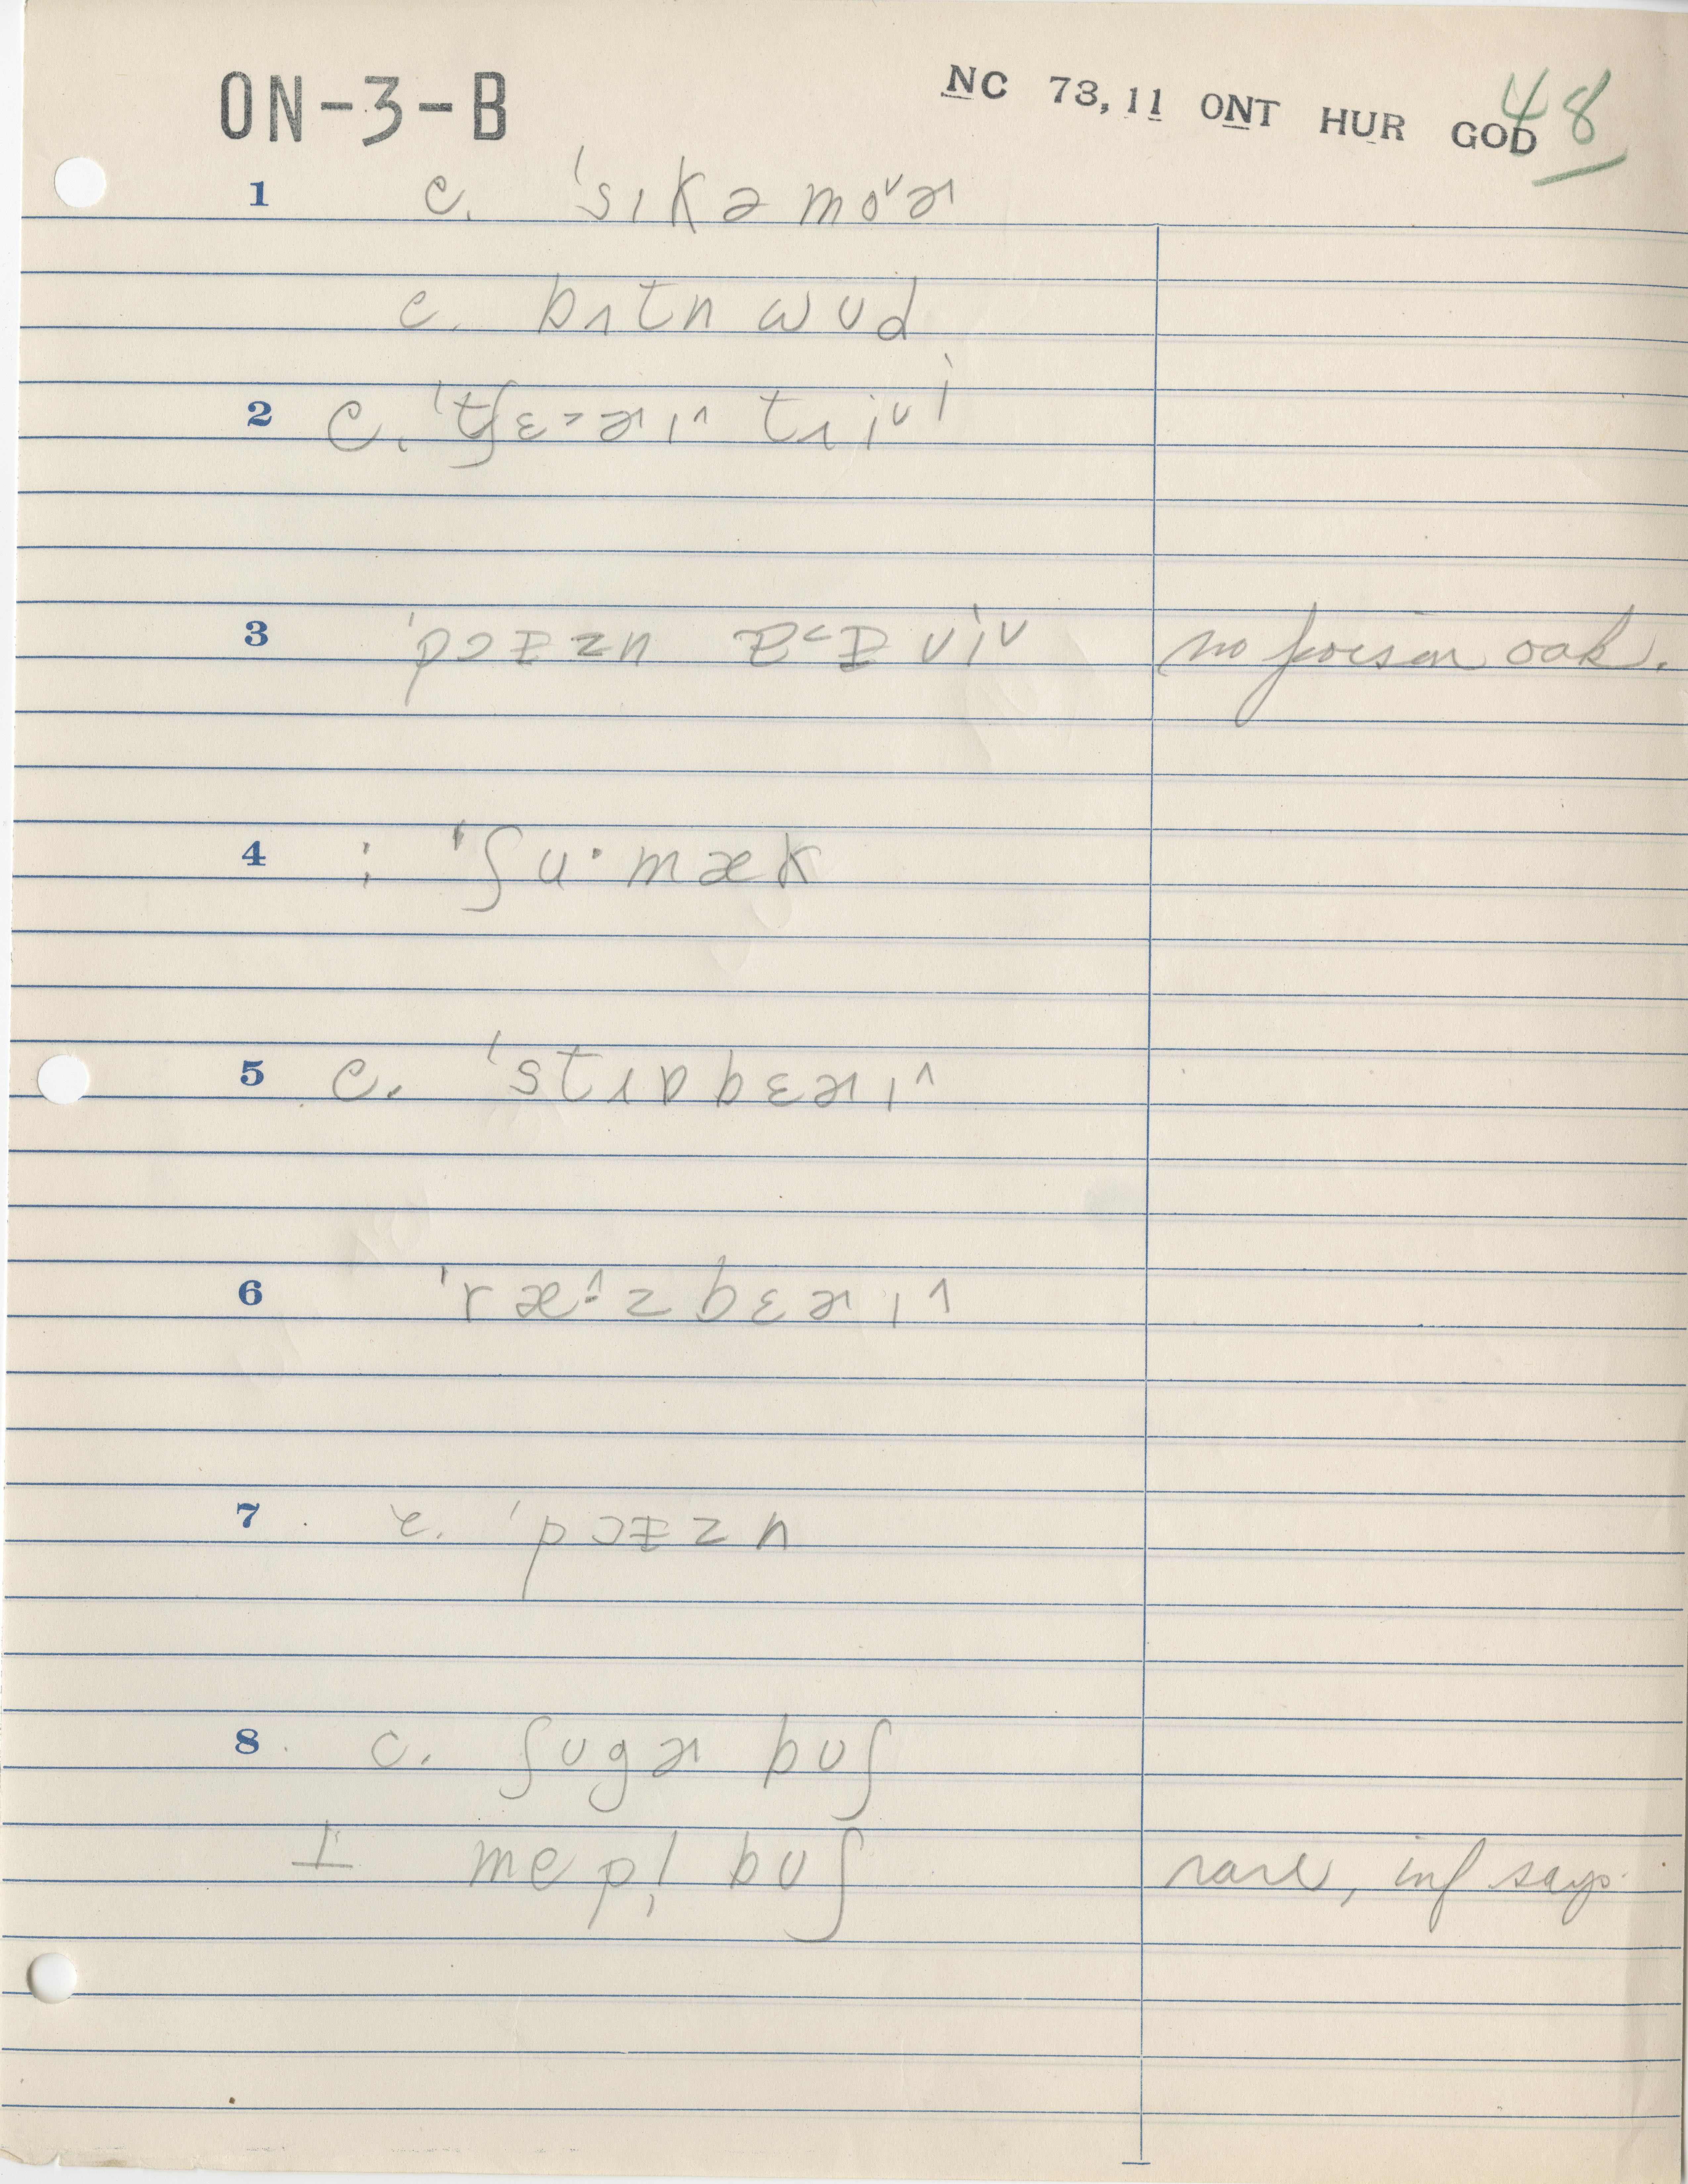 ON-3-B
NC 73,11 ONT HUR GOD 48
1 c. ˈsɪkəmo˅ɚ
c. bɐtn wʊd
2 c. ˈtʃɛ˃ɚɪ˄ tɹi˅i
3 ˈpɔɪzn a˂ɪvi˅ no poison oak.
4 ; ˈʃu·mæk
5 c. ˈstɹɒbɛɚɪ˄
6 ˈræ·˄zbɛɚɪ˄
7 c. ˈpɔɪzn
8 c. ʃʊgɚ bʊʃ
⊥ mepl̩ bʊʃ rare, inf says.